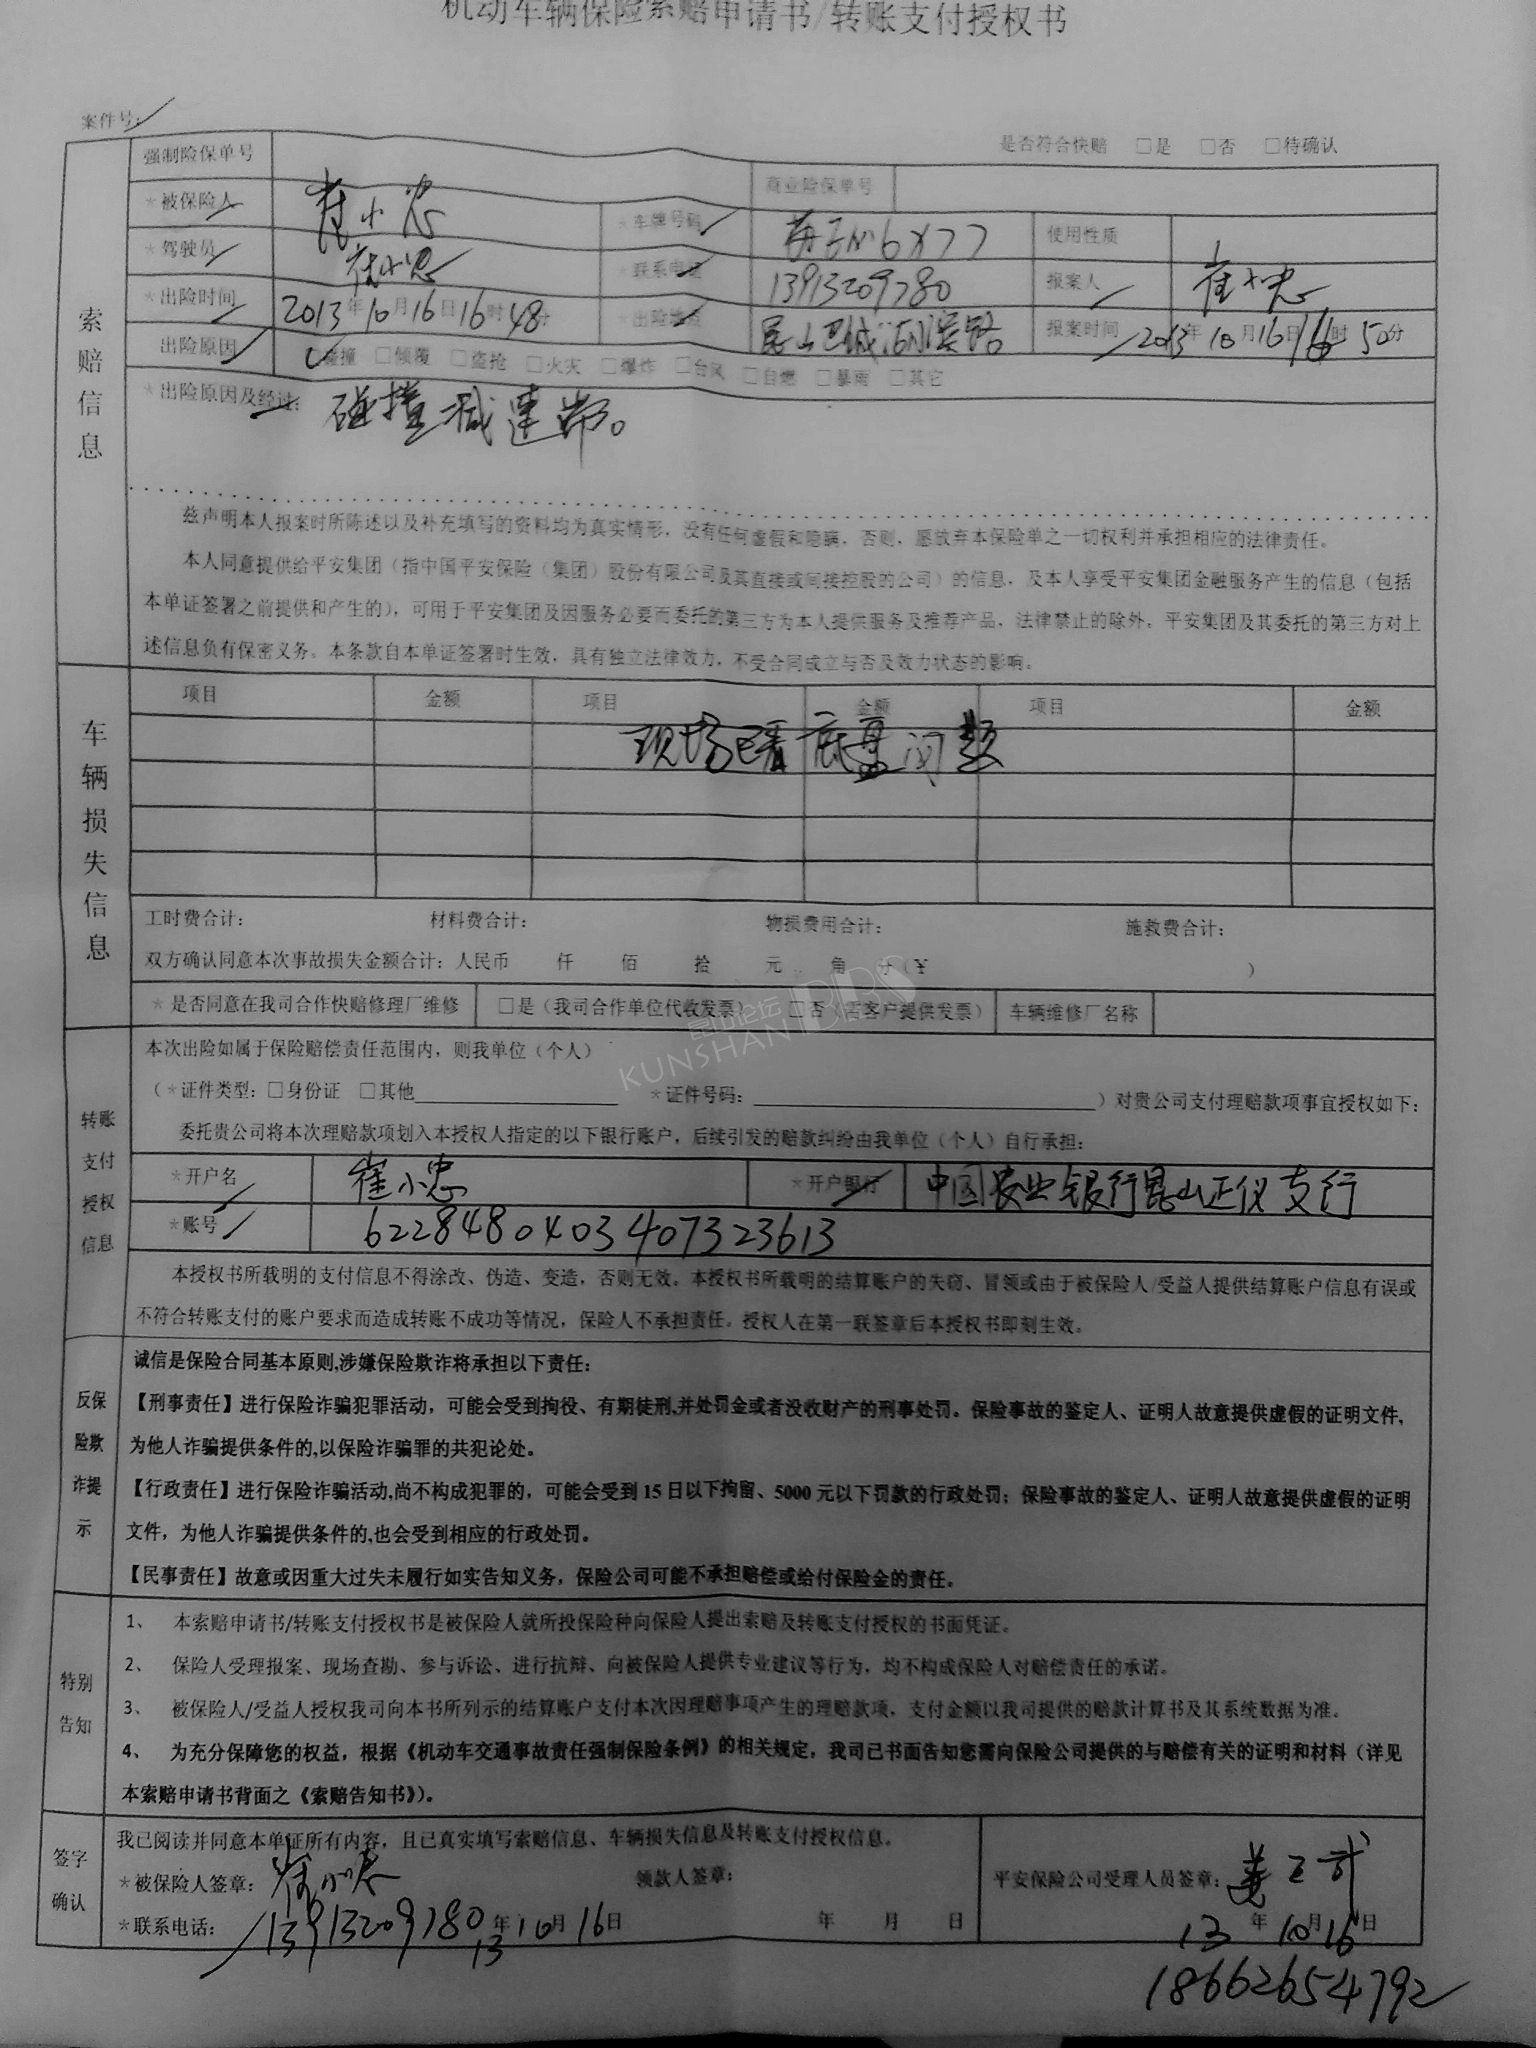 机动车辆保险索赔申请书/转账支付授权书
案件号:
是否符合快赔 □是 □否 □待确认
索赔信息
强制险保单号 商业险保单号
*被保险人 崔小忠 *车牌号码 使用性质
*驾驶员 崔小忠 *联系电话 13913209780 报案人 崔小忠
*出险时间 2013年10月16日16时48分 *出险地点 昆山巴城湖滨路 报案时间 2013年10月16日16时50分
出险原因 碰撞 □倾覆 □盗抢 □火灾 □爆炸 □台风 □自燃 □暴雨 □其它
*出险原因及经过: 碰撞减速带。
兹声明本人报案时所陈述以及补充填写的资料均为真实情形，没有任何虚假和隐瞒，否则，愿放弃本保险单之一切权利并承担相应的法律责任。
本人同意提供给平安集团（指中国平安保险（集团）股份有限公司及其直接或间接控股的公司）的信息，及本人享受平安集团金融服务产生的信息（包括
本单证签署之前提供和产生的），可用于平安集团及因服务必要而委托的第三方为本人提供服务及推荐产品，法律禁止的除外。平安集团及其委托的第三方对上
述信息负有保密义务。本条款自本单证签署时生效，具有独立法律效力，不受合同成立与否及效力状态的影响。
车辆损失信息
项目 金额 项目 金额 项目 金额
现场已看底盘问题
工时费合计: 材料费合计: 物损费用合计: 施救费合计:
双方确认同意本次事故损失金额合计: 人民币 仟 佰 拾 元 角 分（¥ ）
*是否同意在我司合作快赔修理厂维修 □是（我司合作单位代收发票） □否（需客户提供发票） 车辆维修厂名称
昆山论坛
KUNSHAN BBS
转账支付授权信息
本次出险如属于保险赔偿责任范围内，则我单位（个人）
（*证件类型: □身份证 □其他 *证件号码: ）对贵公司支付理赔款项事宜授权如下:
委托贵公司将本次理赔款项划入本授权人指定的以下银行账户，后续引发的赔款纠纷由我单位（个人）自行承担:
*开户名 崔小忠 *开户银行 中国农业银行昆山正仪支行
*账号 6228480403407323613
本授权书所载明的支付信息不得涂改、伪造、变造，否则无效。本授权书所载明的结算账户的失窃、冒领或由于被保险人/受益人提供结算账户信息有误或
不符合转账支付的账户要求而造成转账不成功等情况，保险人不承担责任。授权人在第一联签章后本授权书即刻生效。
反保险欺诈提示
诚信是保险合同基本原则,涉嫌保险欺诈将承担以下责任:
【刑事责任】进行保险诈骗犯罪活动，可能会受到拘役、有期徒刑,并处罚金或者没收财产的刑事处罚。保险事故的鉴定人、证明人故意提供虚假的证明文件,
为他人诈骗提供条件的,以保险诈骗罪的共犯论处。
【行政责任】进行保险诈骗活动,尚不构成犯罪的，可能会受到15日以下拘留、5000元以下罚款的行政处罚；保险事故的鉴定人、证明人故意提供虚假的证明
文件，为他人诈骗提供条件的,也会受到相应的行政处罚。
【民事责任】故意或因重大过失未履行如实告知义务，保险公司可能不承担赔偿或给付保险金的责任。
特别告知
1、 本索赔申请书/转账支付授权书是被保险人就所投保险种向保险人提出索赔及转账支付授权的书面凭证。
2、 保险人受理报案、现场查勘、参与诉讼、进行抗辩、向被保险人提供专业建议等行为，均不构成保险人对赔偿责任的承诺。
3、 被保险人/受益人授权我司向本书所列示的结算账户支付本次因理赔事项产生的理赔款项，支付金额以我司提供的赔款计算书及其系统数据为准。
4、 为充分保障您的权益，根据《机动车交通事故责任强制保险条例》的相关规定，我司已书面告知您需向保险公司提供的与赔偿有关的证明和材料（详见
本索赔申请书背面之《索赔告知书》）。
签字确认
我已阅读并同意本单证所有内容，且已真实填写索赔信息、车辆损失信息及转账支付授权信息。
*被保险人签章: 崔小忠 领款人签章: 平安保险公司受理人员签章:
*联系电话: 13913209780 13年10月16日 年 月 日 13年10月16日
18662654792